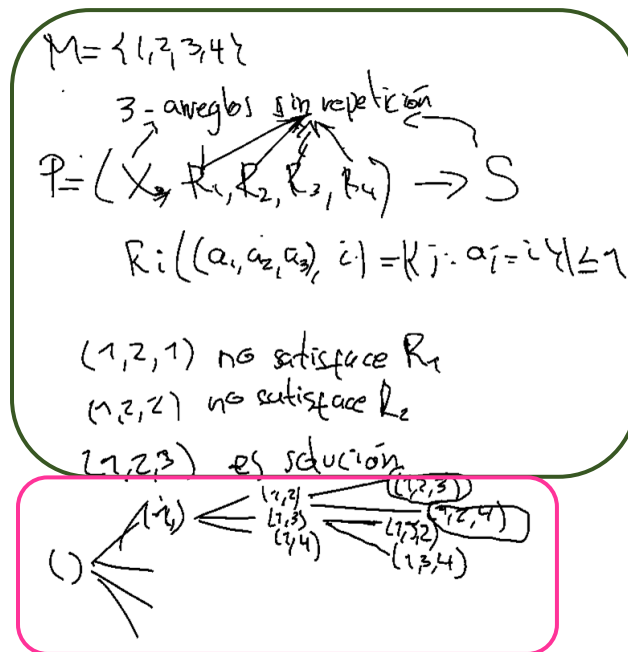 M = {1,2,3,4}
3-arreglos sin repetición
P = (X₃, R₁, R₂, R₃, R₄) → S
Ri((a₁,a₂,a₃), i) = |{j: aj = i}| ≤ 1
(1,2,1) no satisface R₁
(1,2,2) no satisface R₂
(1,2,3) es solución
() (1,) (1,2) (1,2,3)
(1,3) (1,2,4)
(1,4) (1,3,2)
(1,3,4)